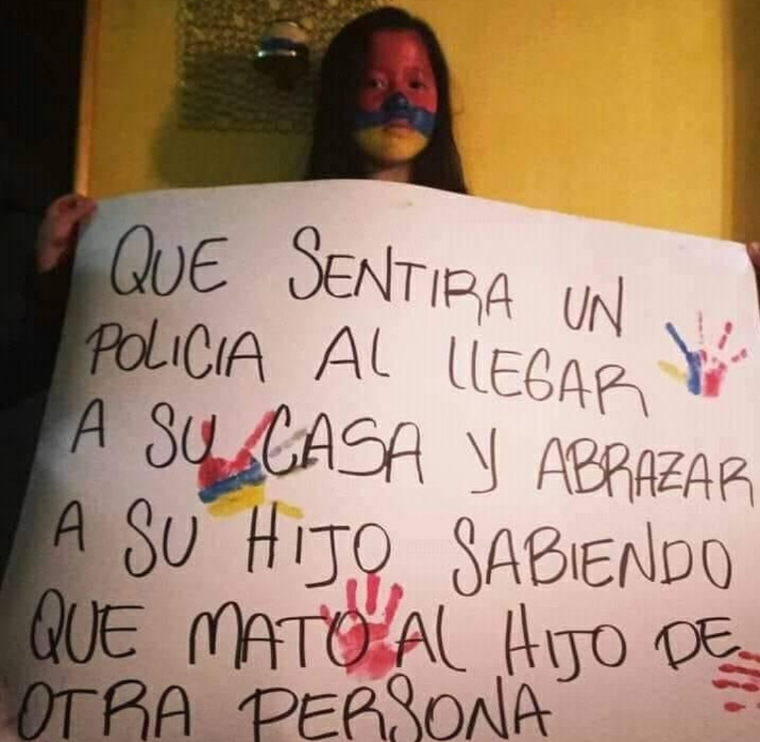 QUE SENTIRA UN
POLICIA AL LLEGAR
A SU CASA Y ABRAZAR
A SU HIJO SABIENDO
QUE MATO AL HIJO DE
OTRA PERSONA